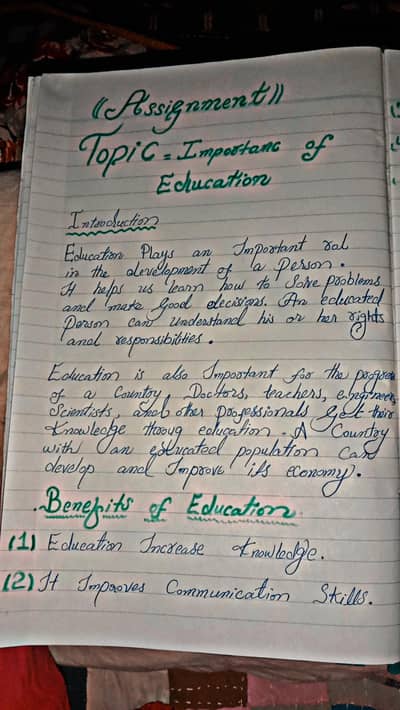 ((Assignment))
Topic = Importanc of
Education
Introduction
Education Plays an Important rol
in the development of a Person.
It helps us learn how to Solve problems
and make good decisions. An educated
Person can understand his or her rights
and responsibilities.
Education is also Important for the progress
of a Country. Doctors, teachers, engineers,
Scientists, and other professionals get their
Knowledge throug education. A Country
with an educated population can
develop and Improve its economy.
Benefits of Education
(1) Education Increase knowledge.
(2) It Improves Communication Skills.